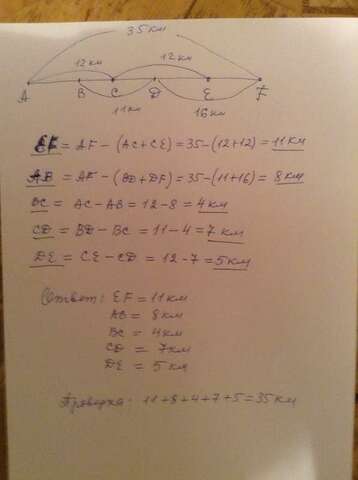 35 км
12 км 12 км
A B C D E F
11 км 16 км
EF = AF - (AC+CE) = 35-(12+12) = 11 км
AB = AF - (BD+DF) = 35-(11+16) = 8 км
BC = AC - AB = 12-8 = 4 км
CD = BD - BC = 11-4 = 7 км
DE = CE - CD = 12-7 = 5 км
Ответ: EF = 11 км
AC = 8 км
BC = 4 км
CD = 7 км
DE = 5 км
Проверка: 11+8+4+7+5=35 км